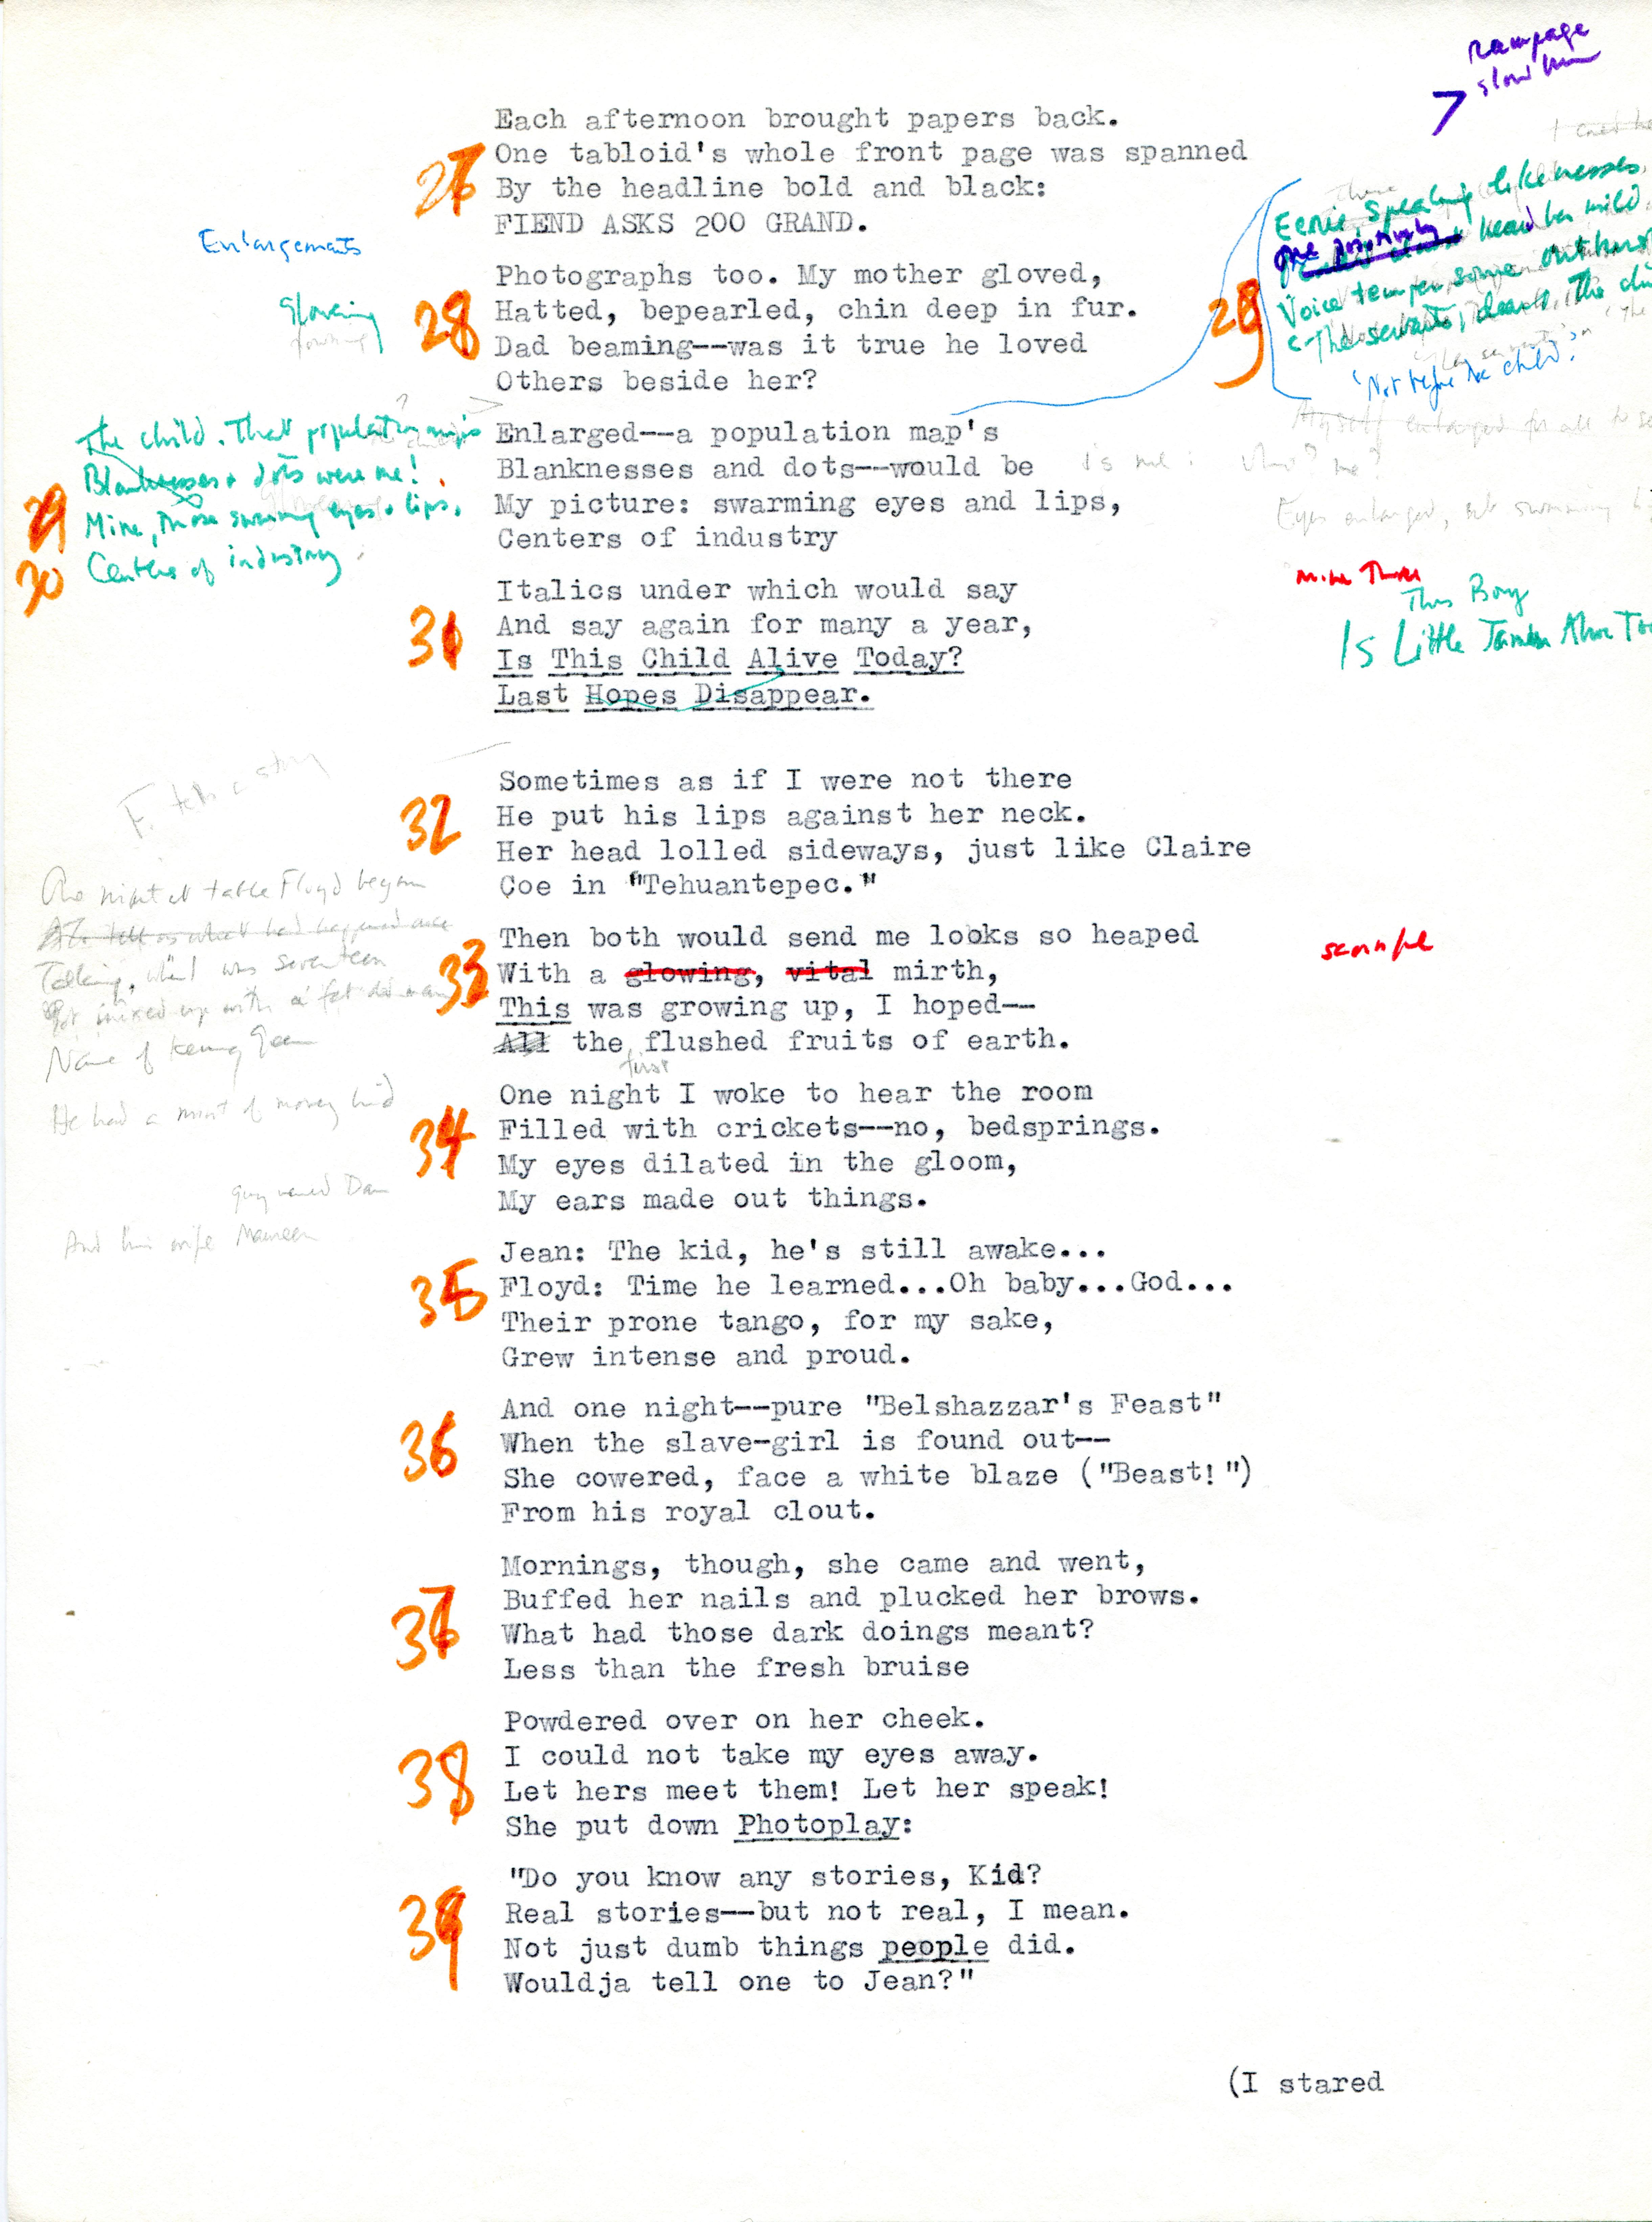 rampage
Each afternoon brought papers back.
27
One tabloid's whole front page was spanned
By the headline bold and black:
FIEND ASKS 200 GRAND.
Enlargements
Eerie, speaking likenesses
One positively heard her mild
Voice temper some outburst
29
"The servants, dear, the
'Not before the child.'
Photographs too. My mother gloved,
Glowing
28
Hatted, bepearled, chin deep in fur.
Dad beaming--was it true he loved
Others beside her?
The child. That population map's
Blanknesses + dots were me!
29
Mine, those swarming eyes + lips,
30
Centers of industry
Enlarged--a population map's
Blanknesses and dots--would be
My picture: swarming eyes and lips,
Centers of industry
Myself enlarged for all to
Eyes enlarged, but swimming
Italics under which would say
31
And say again for many a year,
Is This Child Alive Today?
Last Hopes Disappear.
This Boy
Is Little
F. tells a story
Sometimes as if I were not there
32
He put his lips against her neck.
Her head lolled sideways, just like Claire
Coe in "Tehuantepec."
One night at table Floyd began
Talking, "When I was seventeen
Got mixed up with a
Name of
He had a mint of money hid
guy named Dan
And his wife Maureen
Then both would send me looks so heaped
33
With a glowing, vital mirth,
This was growing up, I hoped--
All the flushed fruits of earth.
first
One night I woke to hear the room
34
Filled with crickets--no, bedsprings.
My eyes dilated in the gloom,
My ears made out things.
Jean: The kid, he's still awake...
35
Floyd: Time he learned...Oh baby...God...
Their prone tango, for my sake,
Grew intense and proud.
And one night--pure "Belshazzar's Feast"
36
When the slave-girl is found out--
She cowered, face a white blaze ("Beast!")
From his royal clout.
Mornings, though, she came and went,
37
Buffed her nails and plucked her brows.
What had those dark doings meant?
Less than the fresh bruise
Powdered over on her cheek.
38
I could not take my eyes away.
Let hers meet them! Let her speak!
She put down Photoplay:
"Do you know any stories, Kid?
39
Real stories--but not real, I mean.
Not just dumb things people did.
Wouldja tell one to Jean?"
(I stared